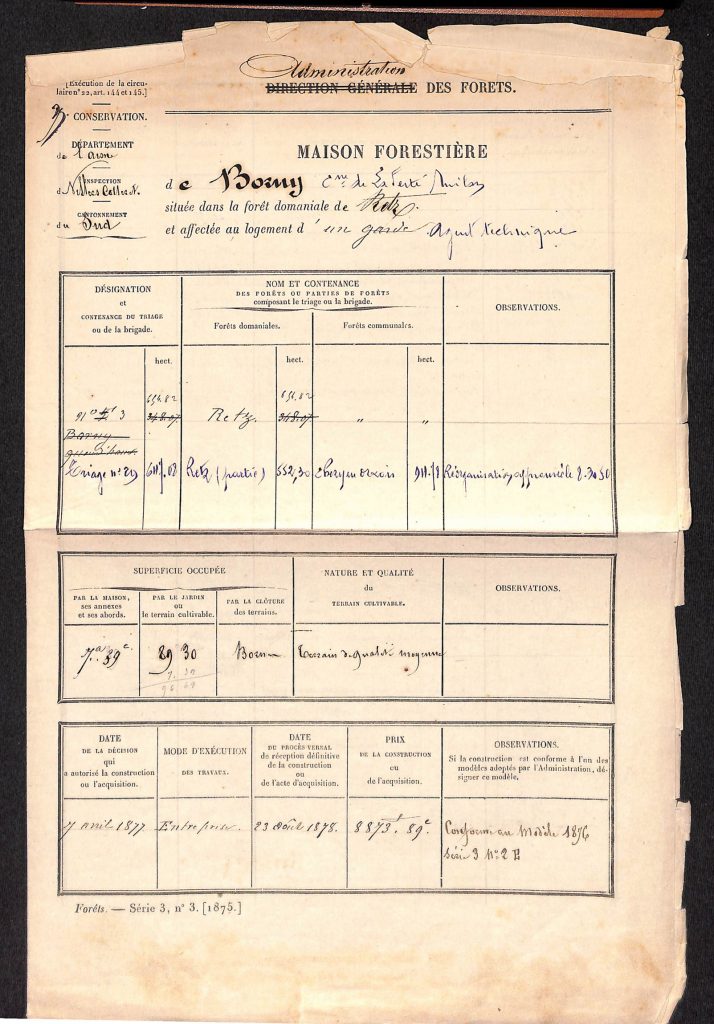 Administration
DIRECTION GÉNÉRALE DES FORETS.
[Exécution de la circu-
laire n° 22, art. 144 et 145.]
7e CONSERVATION.
DÉPARTEMENT
de l'aisne
INSPECTION
de Villers Cotterets
CANTONNEMENT
du Sud
MAISON FORESTIÈRE
de Borny Cne de La Ferté Milon
située dans la forêt domaniale de Retz
et affectée au logement d'un garde agent technique
DÉSIGNATION
et
CONTENANCE DU TRIAGE
ou de la brigade.
NOM ET CONTENANCE
DES FORÊTS OU PARTIES DE FORÊTS
composant le triage ou la brigade.
OBSERVATIONS.
Forêts domaniales.
Forêts communales.
hect. hect. hect.
654.82 654.82
n° 3 348.07 Retz. 348.07 " "
Borny
Triage n° 29 Retz (partie) 552,30 Réorganisation approuvée le
SUPERFICIE OCCUPÉE
NATURE ET QUALITÉ
du
TERRAIN CULTIVABLE.
OBSERVATIONS.
PAR LA MAISON,
ses annexes
et ses abords.
PAR LE JARDIN
ou
le terrain cultivable.
PAR LA CLÔTURE
des terrains.
7a 39c 89 30 Borne Terrain de qualité moyenne
7.39
96 69
DATE
DE LA DÉCISION
qui
a autorisé la construction
ou l'acquisition.
MODE D'EXÉCUTION
DES TRAVAUX.
DATE
DU PROCÈS VERBAL
de réception définitive
de la construction
ou
de l'acte d'acquisition.
PRIX
DE LA CONSTRUCTION
ou
de l'acquisition.
OBSERVATIONS.
Si la construction est conforme à l'un des
modèles adoptés par l'Administration, dé-
signer ce modèle.
7 avril 1877 Entreprise. 23 Août 1878. 8873f. 89c. Conforme au Modèle 1876
Série 3 N° 2 E
Forêts. — Série 3, n° 3. [1875.]